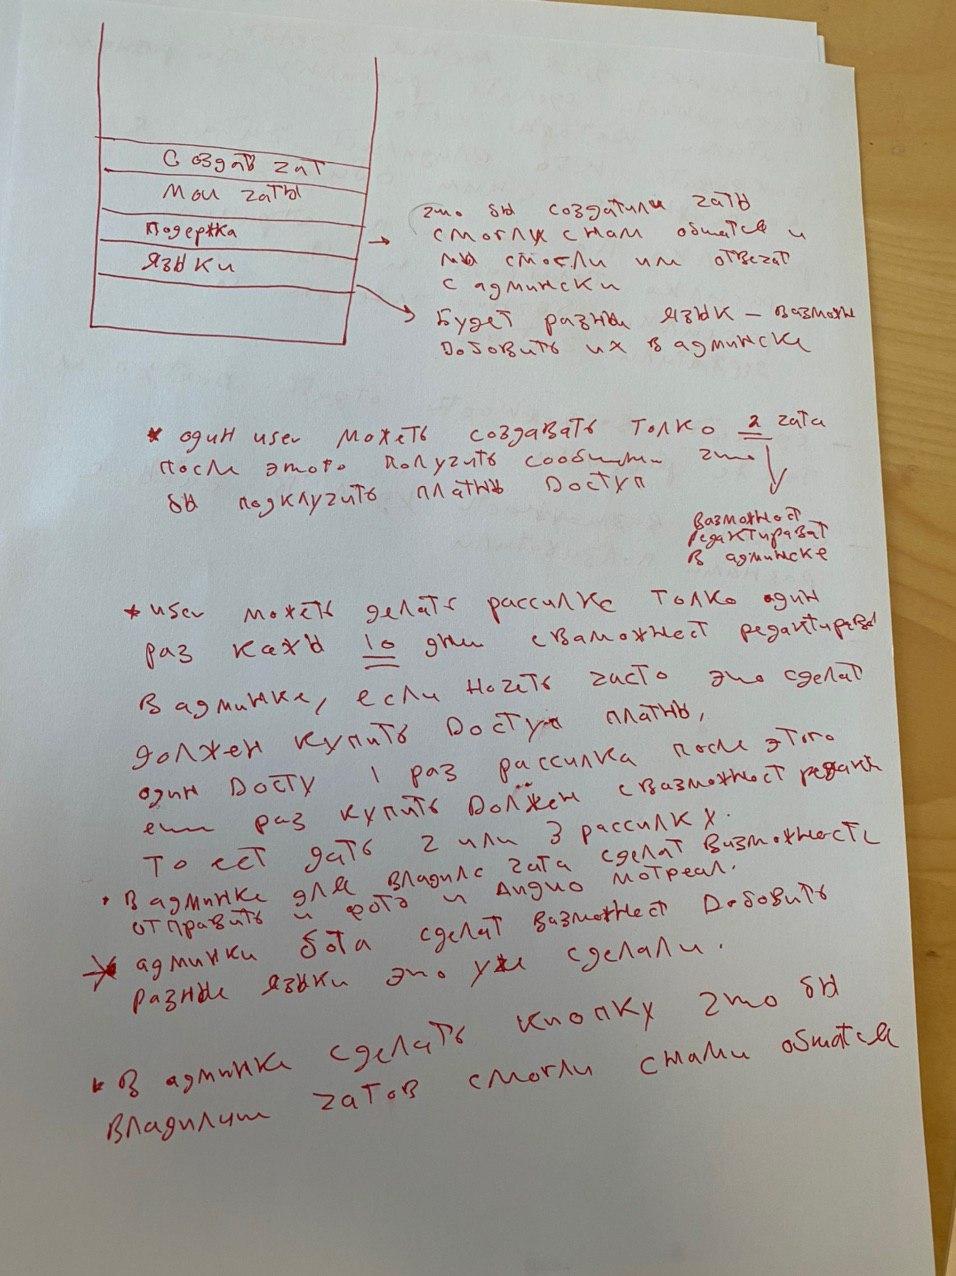 Создатв zат
Мои zаты
Подержка
Языки
zто бы создатили zаты
смогли с нам обшатся и
мы смогли им отвеzат
с админски
Будет разны язык – вазможн
Добовить их в админске
* один user можеть создавать толко 2 zата
после этого полуzить сообшит zто
бы подклуzить платны Доступ
вазможност
редактироват
в админске
* user можеть делать рассилке толко один
раз кажы 10 дни с вазможност редактирова
в админке, если Хоzеть zасто это сделат
должен купить Доступ платны,
один Досту 1 раз рассилка после этого
еш раз купить Должен с вазможност редакт
То ест дать 2 или 3 рассилку.
• В админке для владилс zата сделат вазможность
отправить и фото и Аидио мотреал.
* админки бота сделат вазможност Добовить
разные языки это уже сделали.
* В админке сделать кнопку zто бы
владилиш zатов смогли с нами обшатся